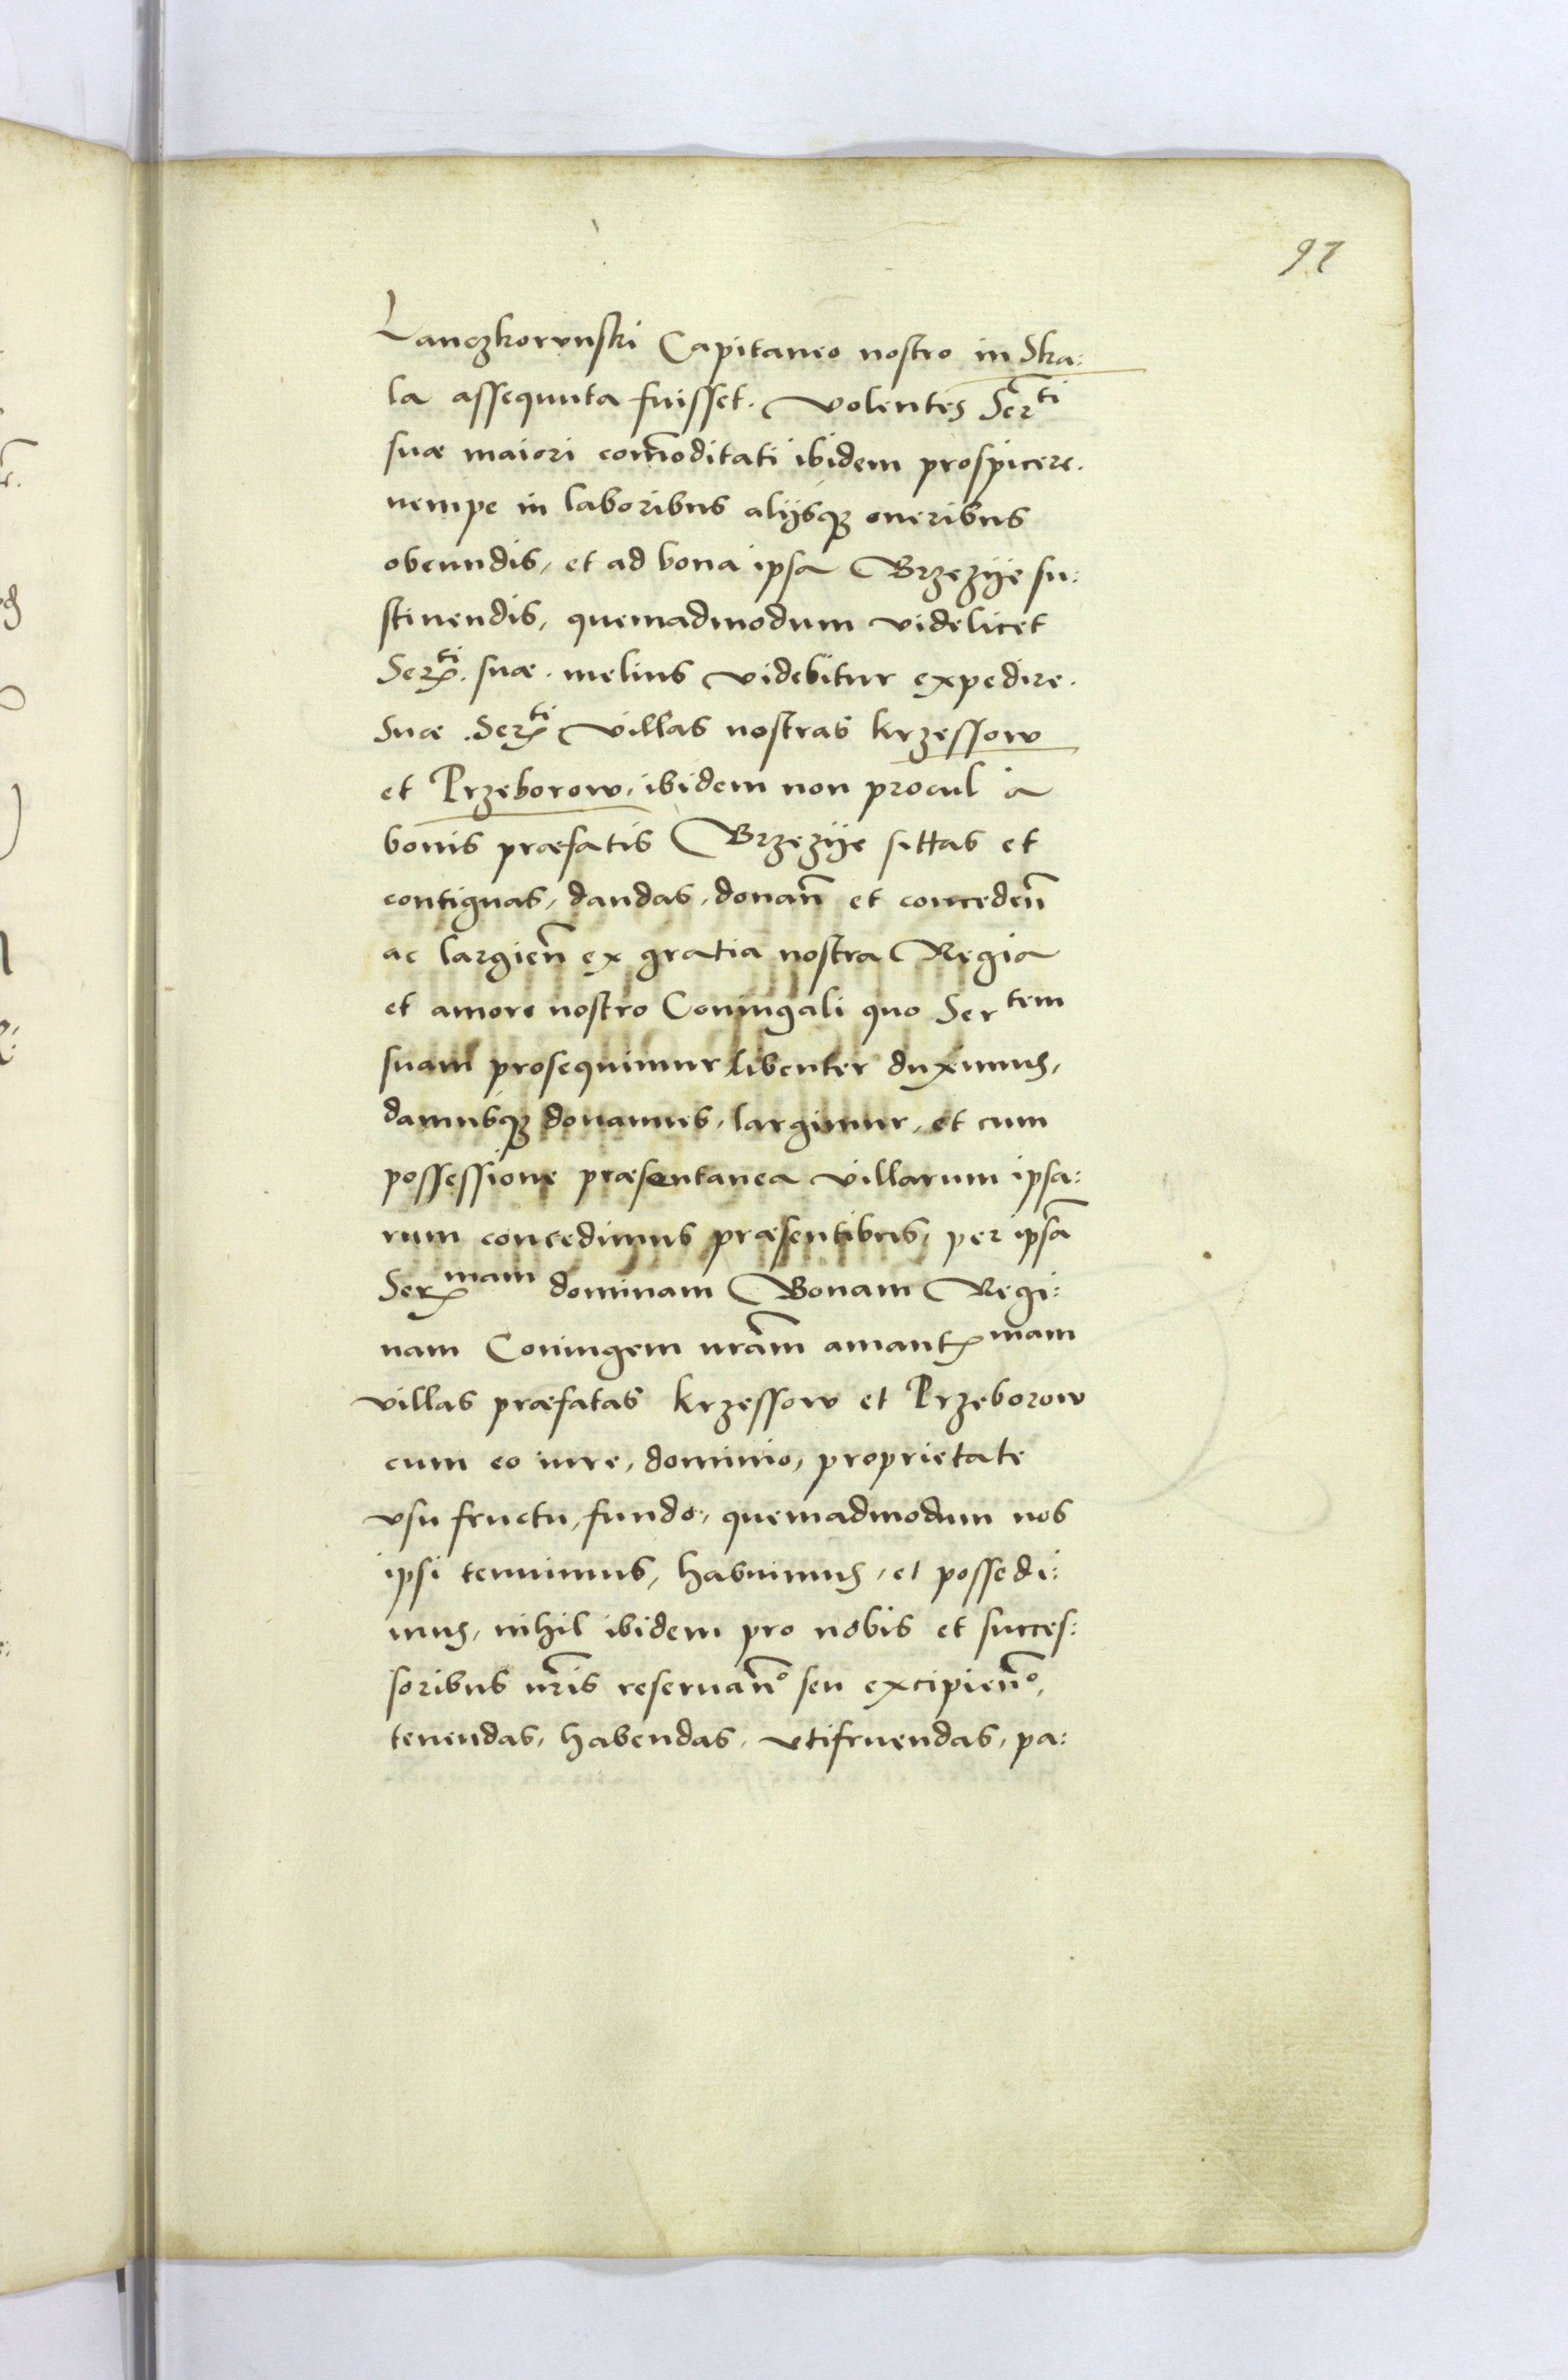 97
Lanczkorunski Capitaneo nostro in Ska:
la assequuta fuisset. volentes Ser̃ti
suæ maiori com̃oditati ibidem prospicere.
nempe in laboribus alijsq₃ oneribus
obeundis, et ad bona ipsa Brzezije su:
stinendis, quemadmodum videlicet
Ser.ti suæ. melius videbitur expedire.
Suæ .Serti villas nostras krzessow
et Przeborow, ibidem non procul a
bonis præfatis Brzezije sittas et
contiguas, dandas, donañ et concedeñ
ac largieñ ex gratia nostra Regia
et amore nostro Coniugali quo Sertem
suam prosequimur libenter duximus,
damusq₃ donamus, largimur, et cum
possessione præsentanea villarum ipsa:
rum concedimus præsentibus, per ipsã
Sermam dominam Bonam Regi:
nam Coniugem nrãm amantmam
villas præfatas krzessow et Przeborow
cum eo iure, dominio, proprietate
vsu fructu, fundo, quemadmodum nos
ipsi tenuimus, habuimus, et possedi:
mus, nihil ibidem pro nobis et succes:
soribus nr̃is reseruañ° seu excipieñ°,
tenendas, habendas, vtifruendas, pa: